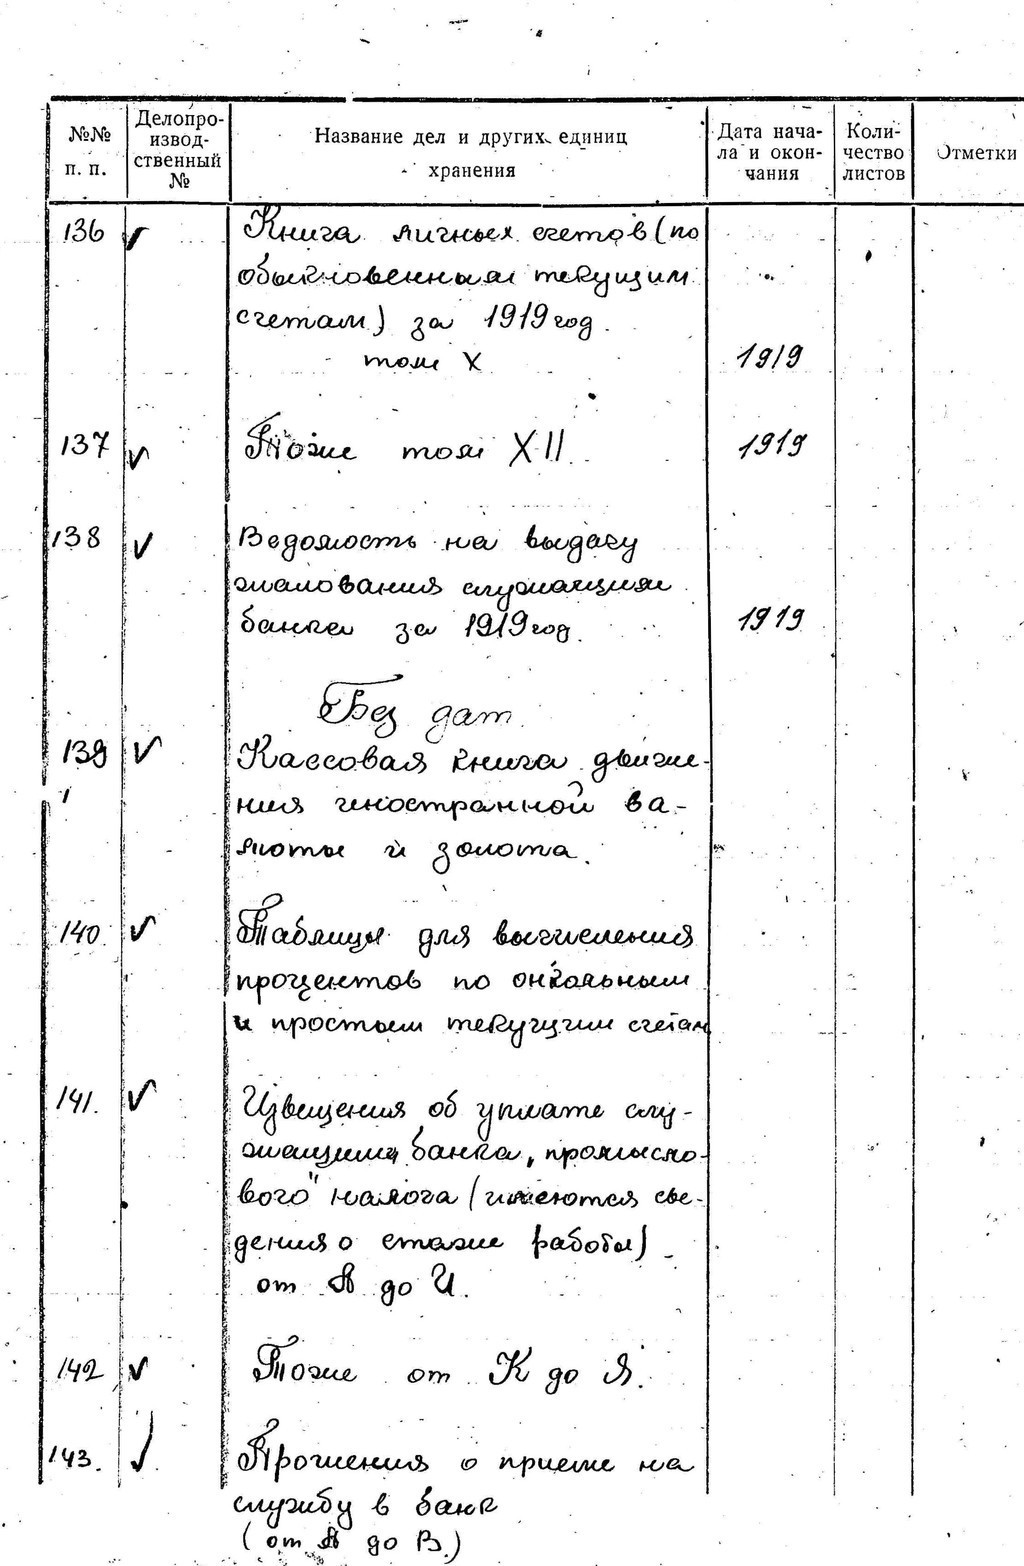 №№ п. п. Делопроизводственный № Название дел и других единиц хранения Дата начала и окончания Количество листов Отметки
136 Книга личных счетов (по
обыкновенным текущим
счетам) за 1919 год.
том X 1919
137 Тоже том XII. 1919
138 Ведомость на выдачу
жалования служащим
банка за 1919 год. 1919
Без дат
139 Кассовая книга движе-
ния иностранной ва-
люты и золота.
140. Таблицы для вычисления
процентов по онкольным
и простым текущим счетам
141. Извещения об уплате слу-
жащими банка „промысло-
вого" налога (имеются све-
дения о стаже работы)
от А до И.
142 Тоже от К до Я.
143. Прошения о приеме на
службу в банк
(от А до В.)